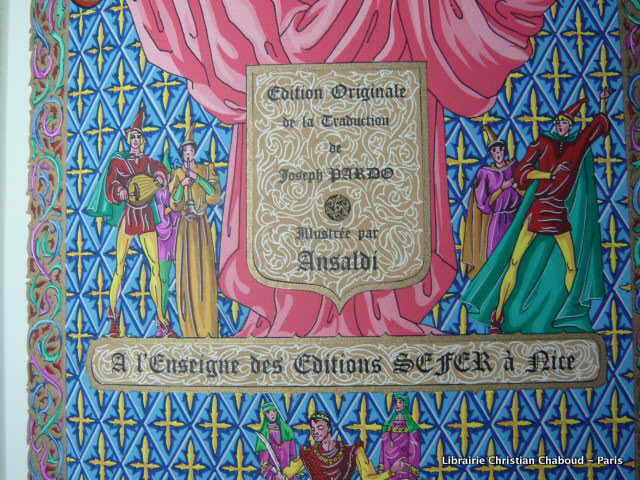 Edition Originale
de la Traduction
de
Joseph PARDO
Illustrée par
Ansaldi
A l'Enseigne des Editions SEFER à Nice
Librairie Christian Chaboud - Paris